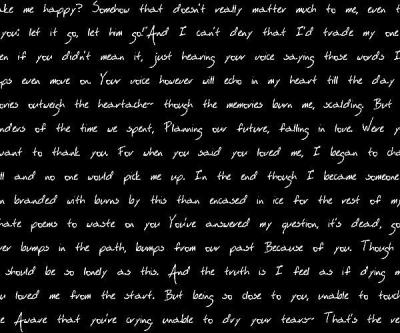 ake me happy? Somehow that doesn't really matter much to me, even t
you; let it go, let him go!"And I can't deny that I'd trade my one
en if you didn't mean it, just hearing your voice saying those words I
ps even move on. Your voice however will echo in my heart till the day
ories outweigh the heartache~ though the memories burn me, scalding. But
nders of the time we spent, Planning our future, falling in love. Were y
want to thank you. For when you said you loved me, I began to cha
ll and no one would pick me up. In the end though I became someone
n branded with burns by this than encased in ice for the rest of my
nate poems to waste on you You've answered my question, it's dead, go
ver bumps in the path, bumps from our past Because of you. Though
should be so lonely as this. And the truth is I feel as if dying m
u loved me from the start. But being so close to you, unable to touch
e Aware that you're crying, unable to dry your tears~ That's the ve